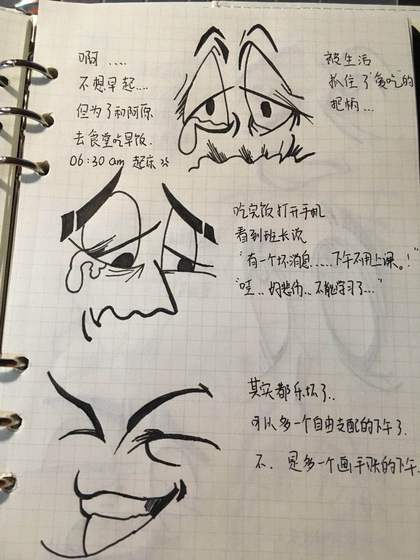 啊....
不想早起...
但为了和阿原
去食堂吃早饭.
06:30 am 起床
被生活
抓住了"贪吃"的
把柄...
吃完饭打开手机
看到班长说
"有一个坏消息.....下午不用上课。!"
"哇..好悲伤..不能学习了..."
其实都乐坏了..
可以多一个自由支配的下午了.
不. 是多一个画手帐的下午.